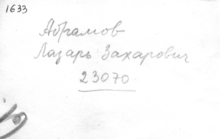 1633
Абрамов
Лазарь Захарович
23070